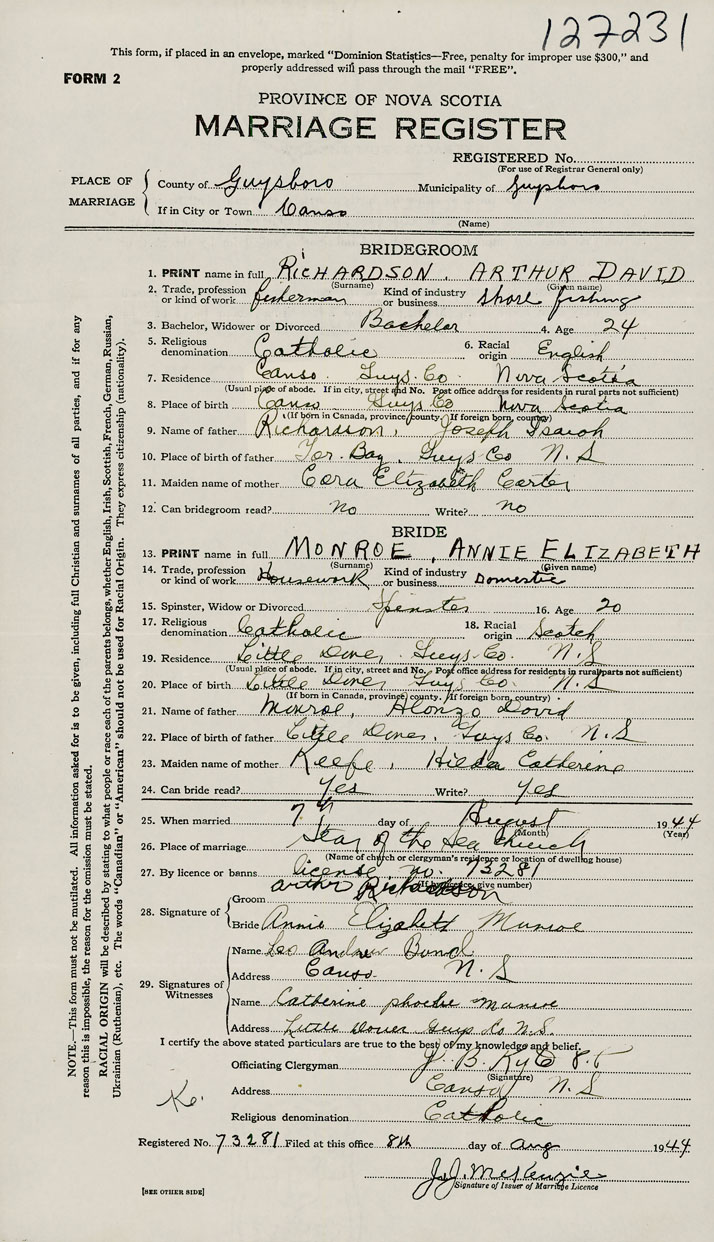 127231
This form, if placed in an envelope, marked "Dominion Statistics—Free, penalty for improper use $300," and
properly addressed will pass through the mail "FREE".
FORM 2
PROVINCE OF NOVA SCOTIA
MARRIAGE REGISTER
REGISTERED No.
(For use of Registrar General only)
PLACE OF MARRIAGE
County of Guysboro Municipality of Guysboro
If in City or Town Canso
(Name)
BRIDEGROOM
1. PRINT name in full RICHARDSON, ARTHUR DAVID
(Surname) (Given name)
2. Trade, profession or kind of work fisherman Kind of industry or business shore fishing
3. Bachelor, Widower or Divorced Bachelor 4. Age 24
5. Religious denomination Catholic 6. Racial origin English
7. Residence Canso Guys. Co. Nova Scotia
(Usual place of abode. If in city, street and No. Post office address for residents in rural parts not sufficient)
8. Place of birth Canso Guys Co Nova Scotia
(If born in Canada, province, county. If foreign born, country)
9. Name of father Richardson, Joseph Isaiah
10. Place of birth of father Tor. Bay, Guys Co N. S
11. Maiden name of mother Cora Elizabeth Carter
12. Can bridegroom read? No Write? no
BRIDE
13. PRINT name in full MONROE, ANNIE ELIZABETH
(Surname) (Given name)
14. Trade, profession or kind of work Housework Kind of industry or business Domestic
15. Spinster, Widow or Divorced Spinster 16. Age 20
17. Religious denomination Catholic 18. Racial origin Scotch
19. Residence Little Dover Guys. Co. N. S
(Usual place of abode. If in city, street and No. Post office address for residents in rural parts not sufficient)
20. Place of birth Little Dover Guys Co. N. S
(If born in Canada, province, county. If foreign born, country)
21. Name of father Monroe, Alonzo David
22. Place of birth of father Little Dover, Guys Co. N. S
23. Maiden name of mother Keefe, Hilda Catherine
24. Can bride read? Yes Write? Yes
25. When married 7th day of August 1944
(Month) (Year)
26. Place of marriage Star of the Sea church
(Name of church or clergyman's residence or location of dwelling house)
27. By licence or banns license no. 73281
(If by licence, give number)
28. Signature of
Groom Arthur Richardson
Bride Annie Elizabeth Munroe
29. Signatures of Witnesses
Name Leo Andrew Bond
Address Canso N. S
Name Catherine phoebe Munroe
Address Little Dover Guys Co N.S.
I certify the above stated particulars are true to the best of my knowledge and belief.
Officiating Clergyman J. B. Kyte P.P.
(Signature)
Address Canso N. S
Religious denomination Catholic
Registered No. 73281 Filed at this office 8th day of Aug 1944
J. J. McKenzie
Signature of Issuer of Marriage Licence
[SEE OTHER SIDE]
NOTE.—This form must not be mutilated. All information asked for is to be given, including full Christian and surnames of all parties, and if for any
reason this is impossible, the reason for the omission must be stated.
RACIAL ORIGIN will be described by stating to what people or race each of the parents belongs, whether English, Irish, Scottish, French, German, Russian,
Ukrainian (Ruthenian), etc. The words "Canadian" or "American" should not be used for Racial Origin. They express citizenship (nationality).